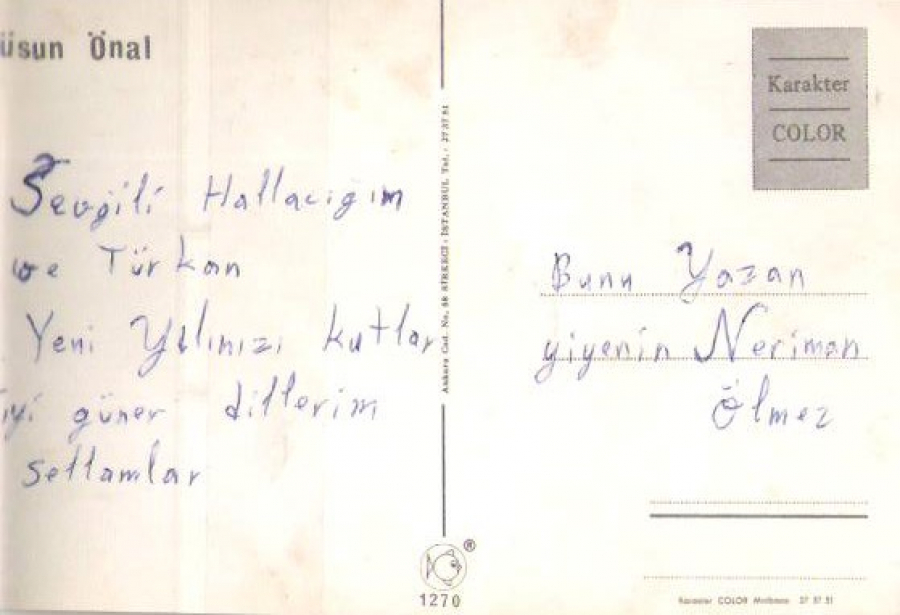 üsun Önal
Sevgili Hallacığım
ve Türkan
Yeni Yılınızı kutlar
iyi güner dillerim
sellamlar
Ankara Cad. No. 58 SİRKECİ - İSTANBUL Tel. : 27 37 51
Karakter
COLOR
Bunu Yazan
yiyenin Neriman
Ölmez
®
1270
Karakter COLOR Matbaası 27 37 51